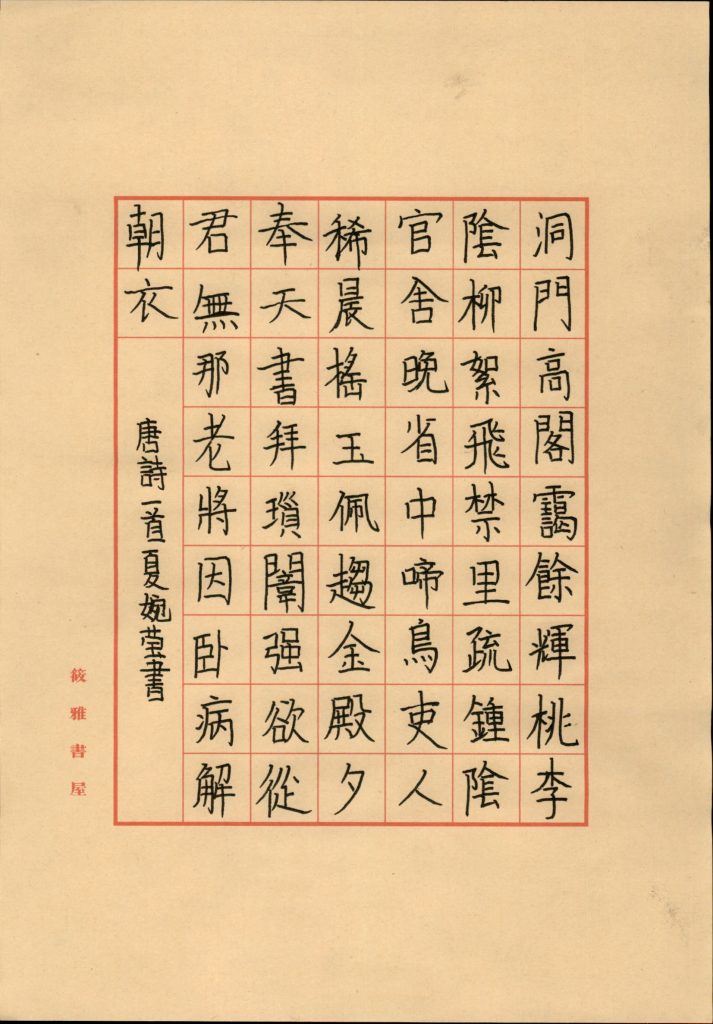 洞門高閣靄餘輝桃李
陰柳絮飛禁里疏鍾陰
官舍晚省中啼鳥吏人
稀晨搖玉佩趨金殿夕
奉天書拜瑣闈强欲從
君無那老將因卧病解
朝衣
唐詩一首夏婉莹書
筱雅書屋